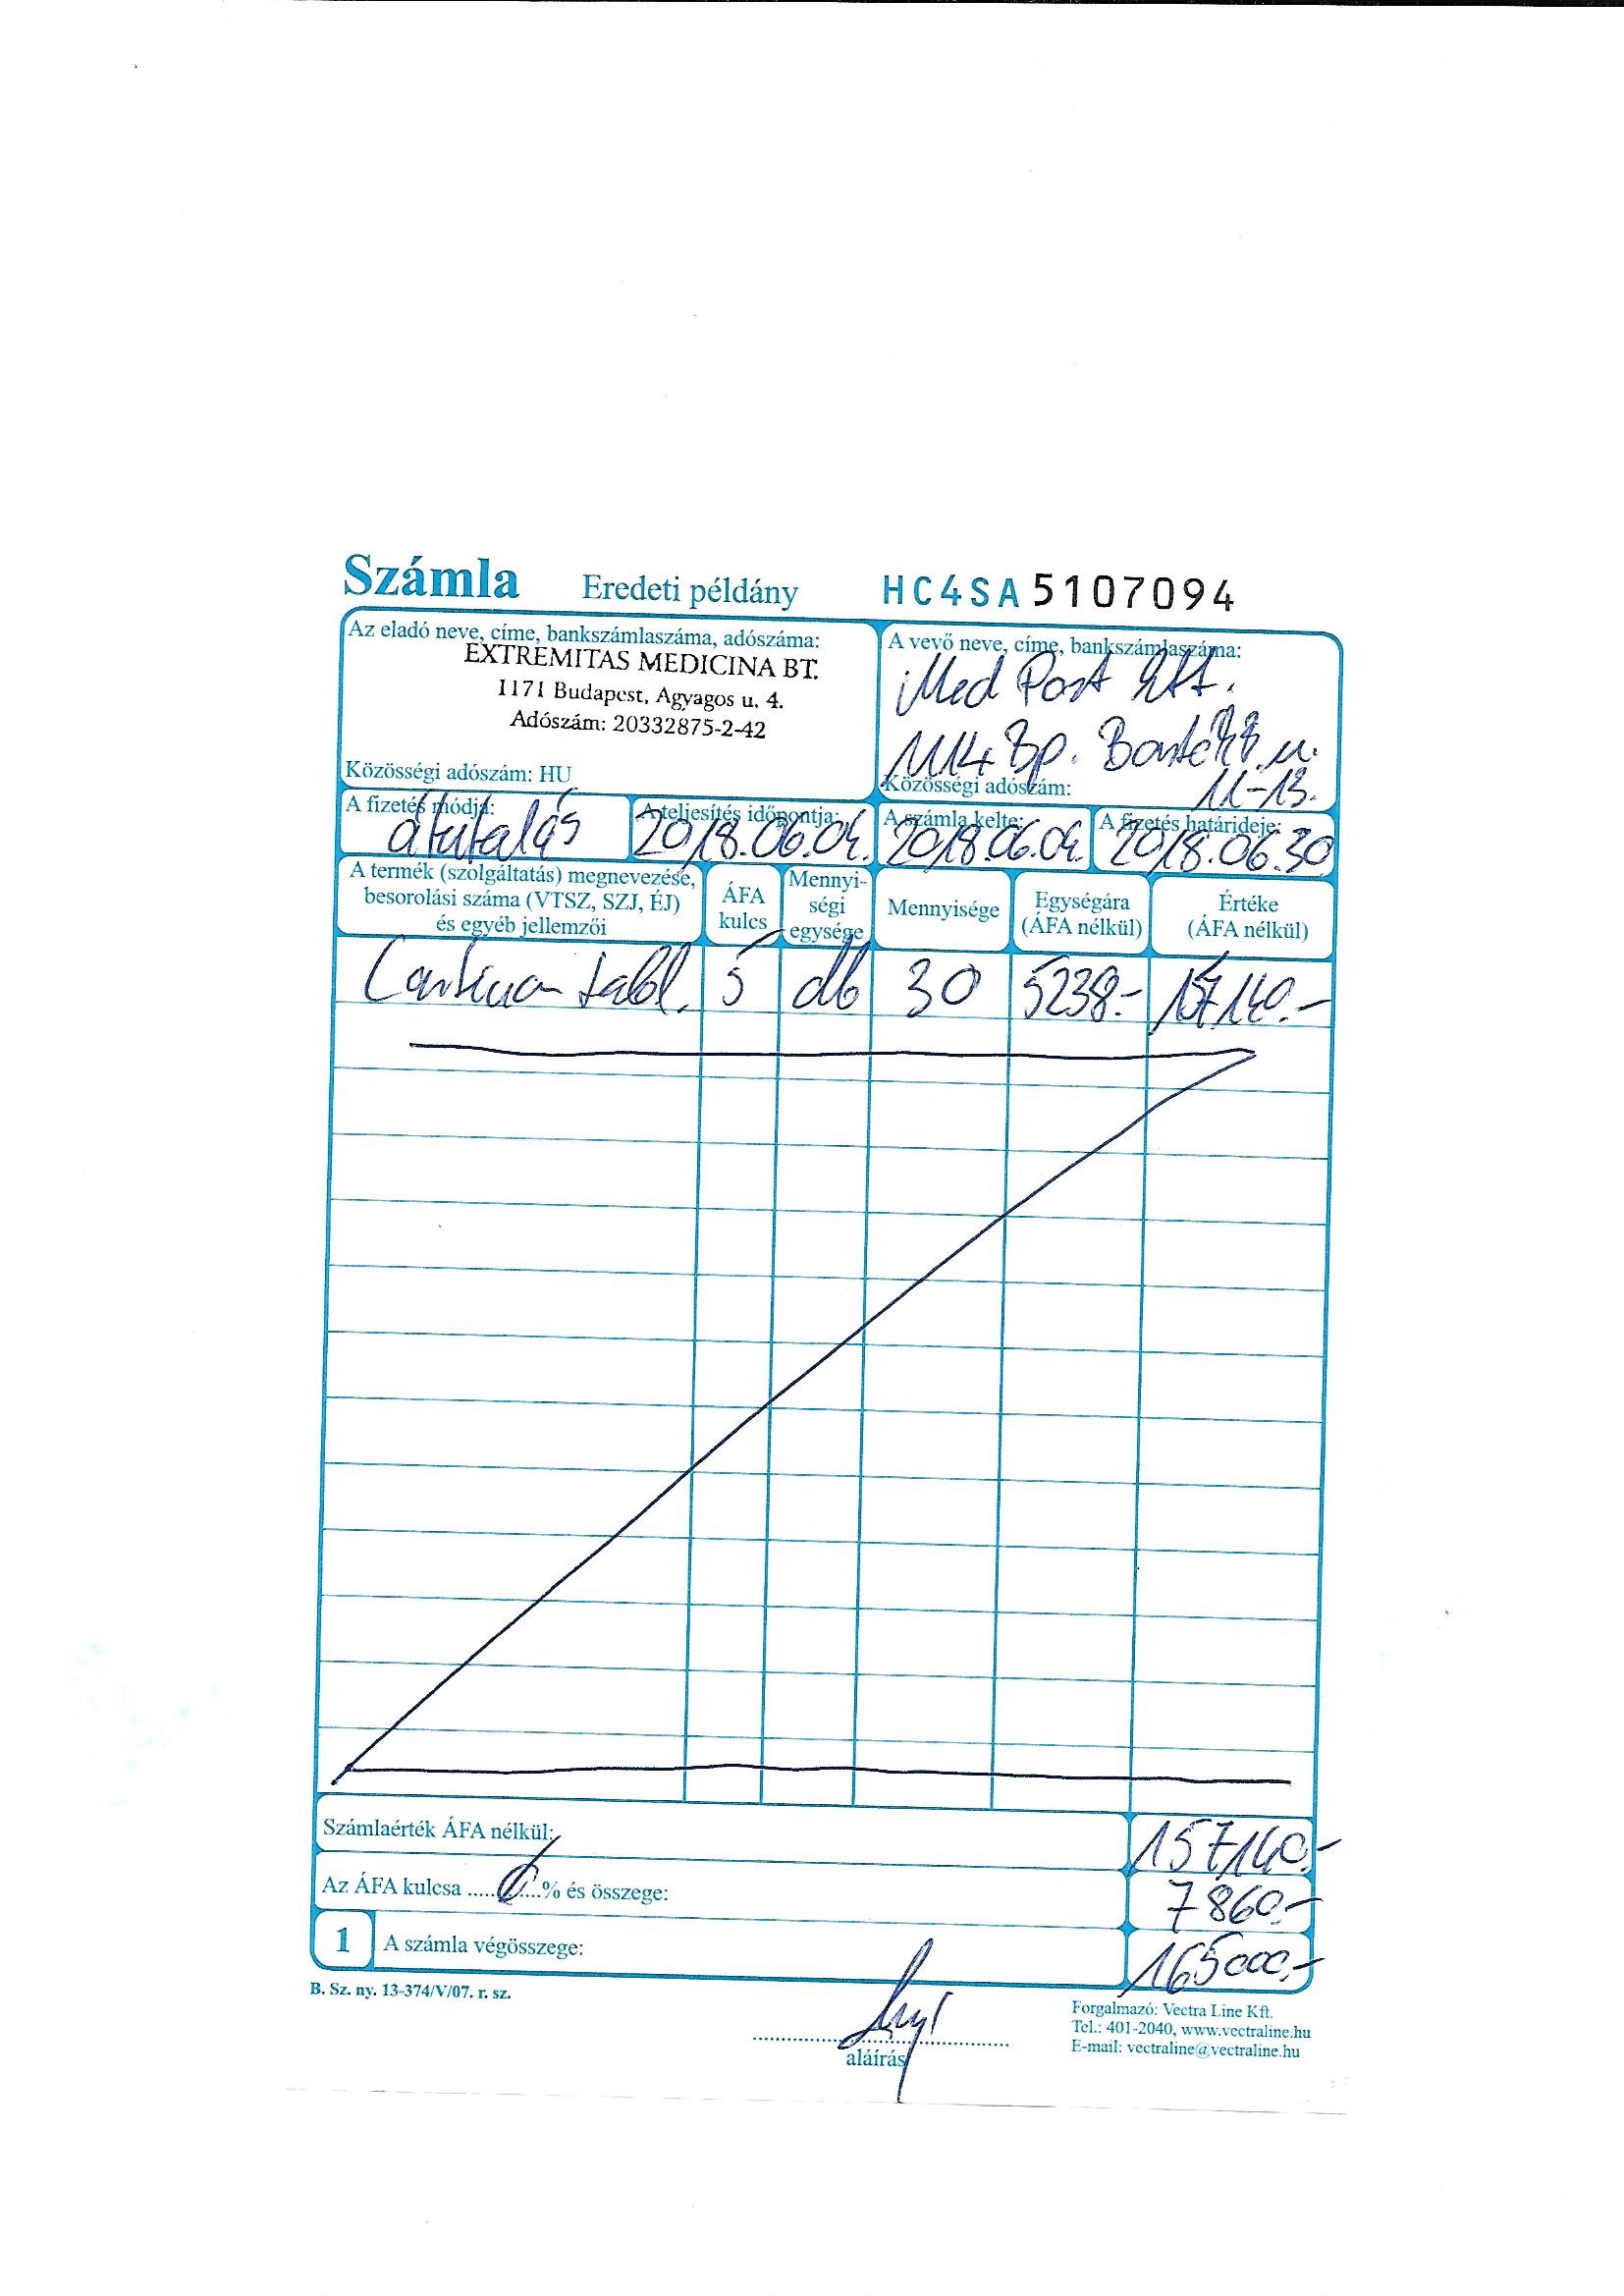 Számla Eredeti példány HC4SA 5107094
Az eladó neve, címe, bankszámlaszáma, adószáma:
EXTREMITAS MEDICINA BT.
1171 Budapest, Agyagos u. 4.
Adószám: 20332875-2-42
Közösségi adószám: HU
A vevő neve, címe, bankszámlaszáma:
Med Post Kft.
1114 Bp. Bartók B. u.
11-13.
Közösségi adószám:
A fizetés módja: A teljesítés időpontja: A számla kelte: A fizetés határideje:
átutalás 2018.06.04. 2018.06.04. 2018.06.30
A termék (szolgáltatás) megnevezése,
besorolási száma (VTSZ, SZJ, ÉJ)
és egyéb jellemzői
ÁFA
kulcs
Mennyi-
ségi
egysége
Mennyisége
Egységára
(ÁFA nélkül)
Értéke
(ÁFA nélkül)
tabl. 5 db 30 5238.- 157140.-
Számlaérték ÁFA nélkül: 157140.-
Az ÁFA kulcsa ..........% és összege: 7860.-
1 A számla végösszege: 165000.-
B. Sz. ny. 13-374/V/07. r. sz.
aláírás
Forgalmazó: Vectra Line Kft.
Tel.: 401-2040, www.vectraline.hu
E-mail: vectraline@vectraline.hu